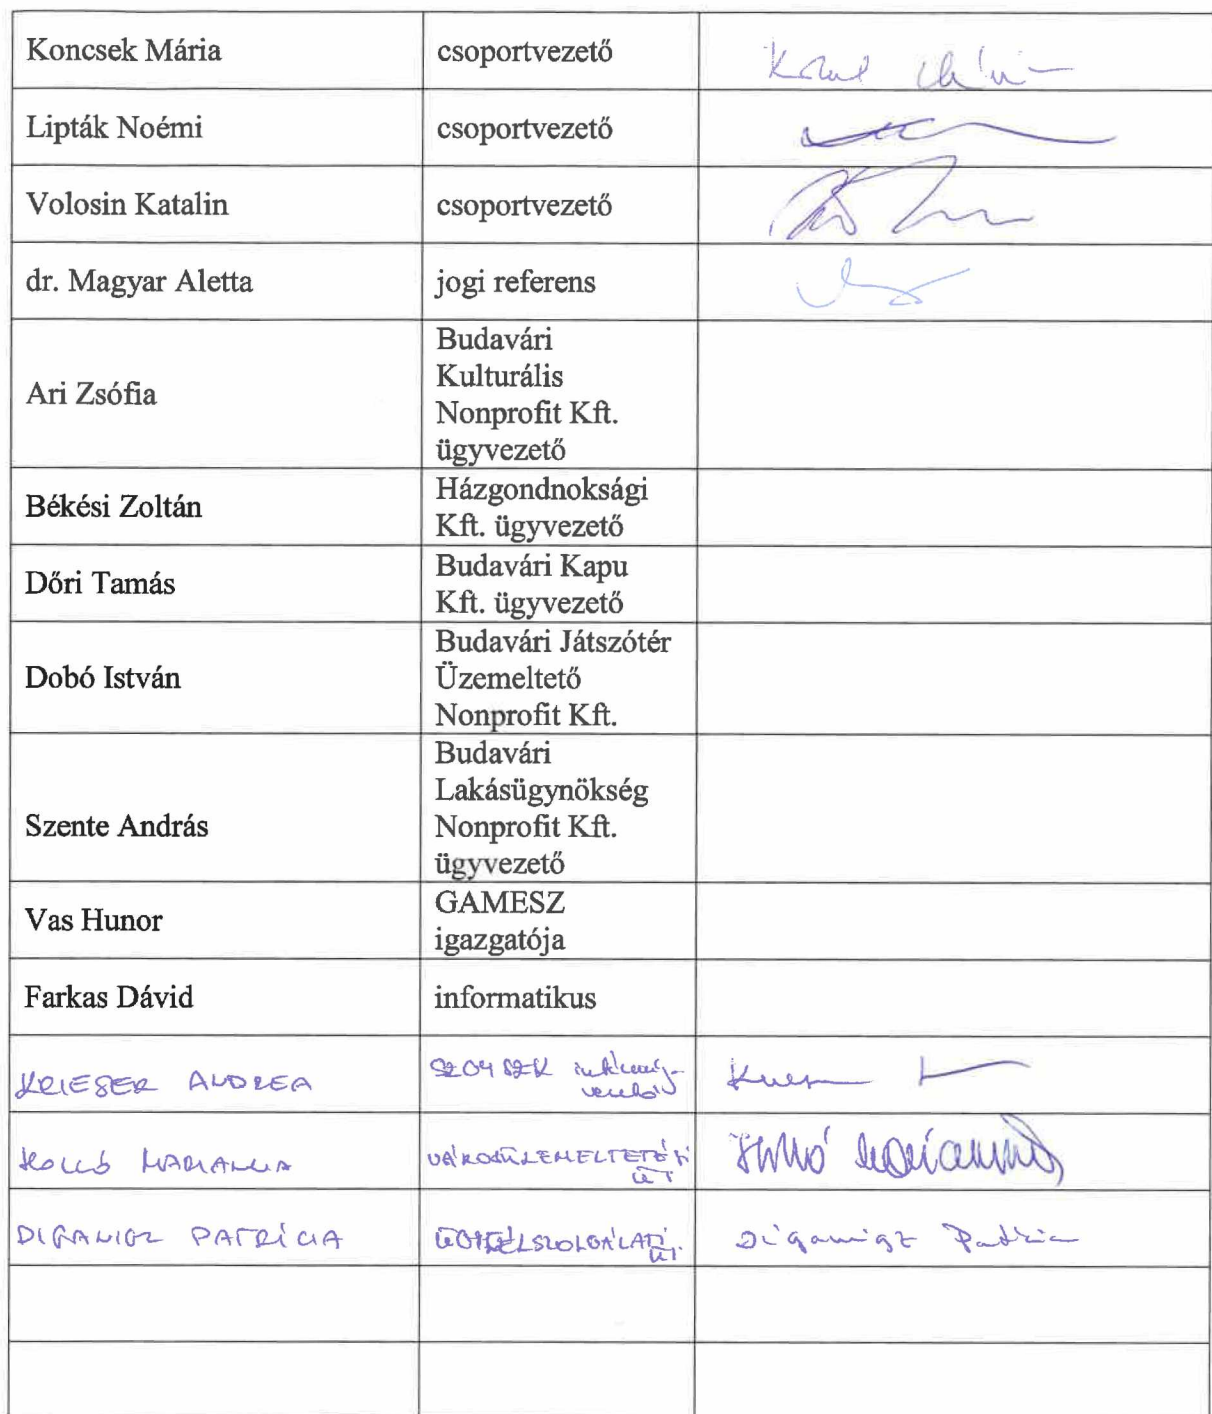 Koncsek Mária csoportvezető
Lipták Noémi csoportvezető
Volosin Katalin csoportvezető
dr. Magyar Aletta jogi referens
Ari Zsófia
Budavári
Kulturális
Nonprofit Kft.
ügyvezető
Békési Zoltán
Házgondnoksági
Kft. ügyvezető
Dőri Tamás
Budavári Kapu
Kft. ügyvezető
Dobó István
Budavári Játszótér
Üzemeltető
Nonprofit Kft.
Szente András
Budavári
Lakásügynökség
Nonprofit Kft.
ügyvezető
Vas Hunor
GAMESZ
igazgatója
Farkas Dávid informatikus
KRIESER ANDREA
KOLLÓ MARIANNA VÁROSÜZEMELTETÉSI Kolló Marianna
PATRÍCIA ÜGYFÉLSZOLGÁLATI Patrícia